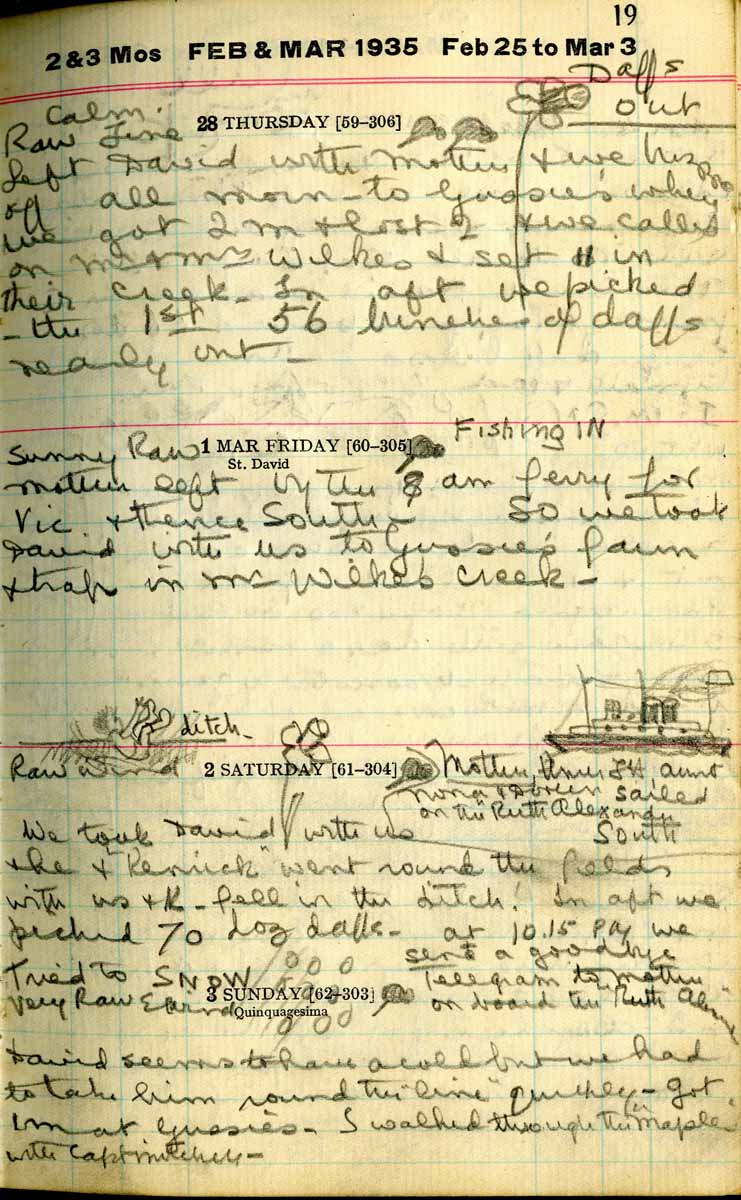 19
2 & 3 Mos FEB & MAR 1935 Feb 25 to Mar 3
Daffs
out
Calm.
Raw Fine
28 THURSDAY [59–306]
Left David with Mother & we
off all morn - to Gussie's where
we got 2 m & lost 2 & we called
on Mr & Mrs Wilkes & set 11 in
their creek - In aft we picked
- the 1st 56 bunches of daffs
nearly out -
Fishing IN
Sunny Raw
1 MAR FRIDAY [60–305]
St. David
Mother left by the 8 am ferry for
Vic & thence South - So we took
David with us to Gussie's farm
& traps in Mr Wilkes creek -
ditch -
Raw wind
2 SATURDAY [61–304]
Mother, aunt
sailed
on the Ruth Alexander
South
We took David with us
& he & "Renick" went round the fields
with us & R - fell in the ditch! In aft we
picked 70 doz daffs - at 10.15 PM we
sent a goodbye
Tried to SNOW
Telegram to Mother
on board the "Ruth
3 SUNDAY [62–303]
Quinquagesima
Very Raw E wind
David seems to have a cold but we had
to take him round the "line" quickly - Got
1 m at Gussies - I walked through the "Maples"
with Capt Mitchell -